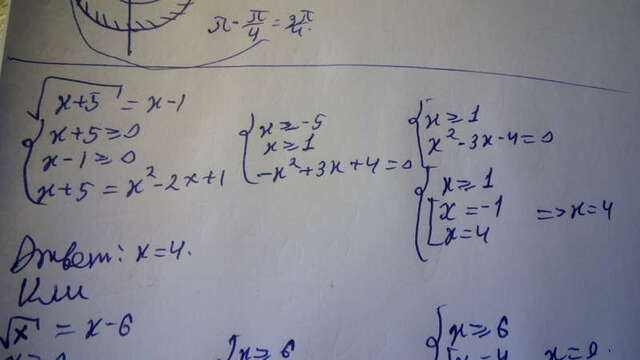 π - π/4 = 3π/4.
√(x+5) = x-1
{ x+5 ≥ 0
x-1 ≥ 0
x+5 = x²-2x+1
{ x ≥ -5
x ≥ 1
-x²+3x+4=0
{ x ≥ 1
x²-3x-4=0
{ x ≥ 1
[ x = -1
x = 4
=> x=4
Ответ: x=4.
Или
√x = x-6
{ x ≥ 6
{ x ≥ 6